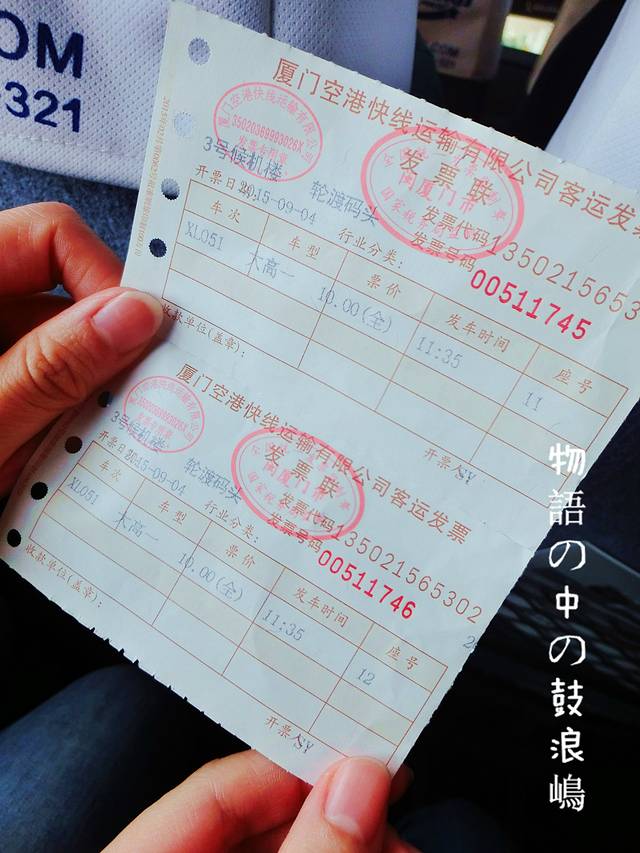 OM
321
厦门空港快线运输有限公司客运发票
厦门空港快线运输有限公司
35020369993026X
发票专用章
发票联
厦门市
3号候机楼 轮渡码头
发票代码1350215653
开票日期2015-09-04 行业分类: 发票号码00511745
车次 车型 票价 发车时间 座号
XL051 大高一 10.00(全) 11:35 11
收款单位(盖章): 开票人SY
厦门空港快线运输有限公司客运发票
厦门空港快线运输有限公司
35020369993026X
发票专用章
发票联
厦门市
3号候机楼 轮渡码头
发票代码135021565302
开票日期2015-09-04 行业分类: 发票号码00511746
车次 车型 票价 发车时间 座号
XL051 大高一 10.00(全) 11:35 12
收款单位(盖章): 开票人SY
物語の中の鼓浪嶋